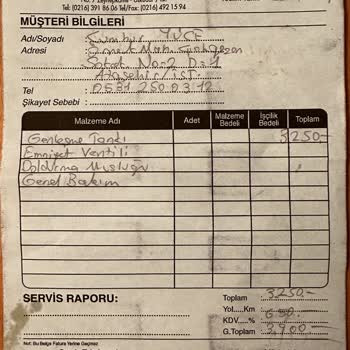 Tel: (0216) 391 86 06 Tel/Fax: (0216) 492 15 94
MÜŞTERİ BİLGİLERİ
Adı/Soyadı : YÜCE
Adresi : Mah.
Sokak No=2 D=1
Ataşehir/İst.
Tel : 0531 250 03 12
Şikayet Sebebi :
Malzeme Adı Adet Malzeme Bedeli İşçilik Bedeli Toplam
Genleşme Tankı 3250-
Emniyet Ventili
Doldurma Musluğu
Genel Bakım
SERVİS RAPORU:
Toplam : 3250-
Yol.....Km : 
KDV.....% : 650-
G.Toplam : 3,900-
Not: Bu Belge Fatura Yerine Geçmez